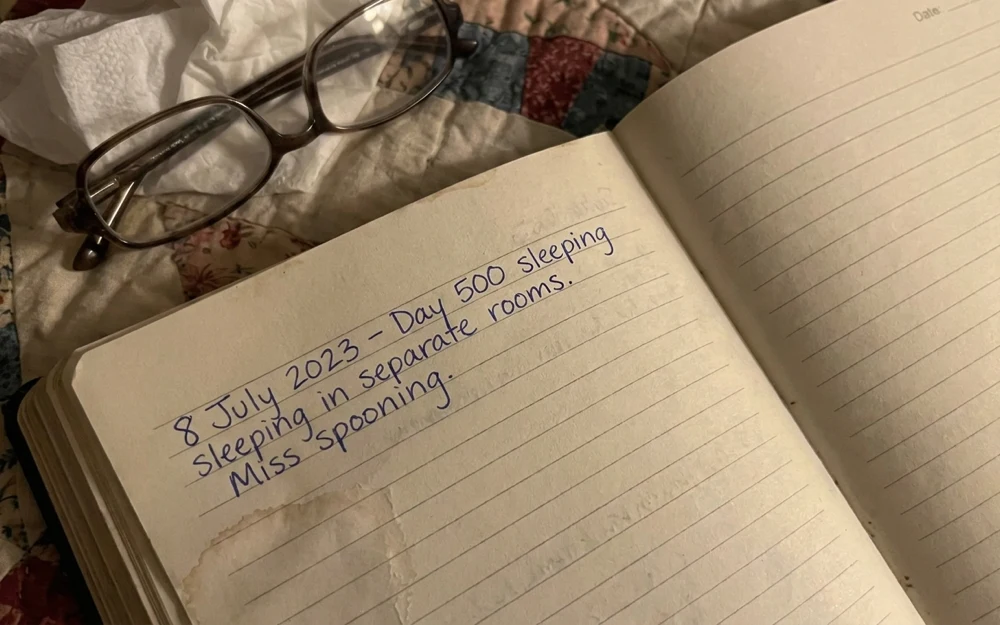 Date:
8 July 2023 – Day 500 sleeping
sleeping in separate rooms.
Miss spooning.